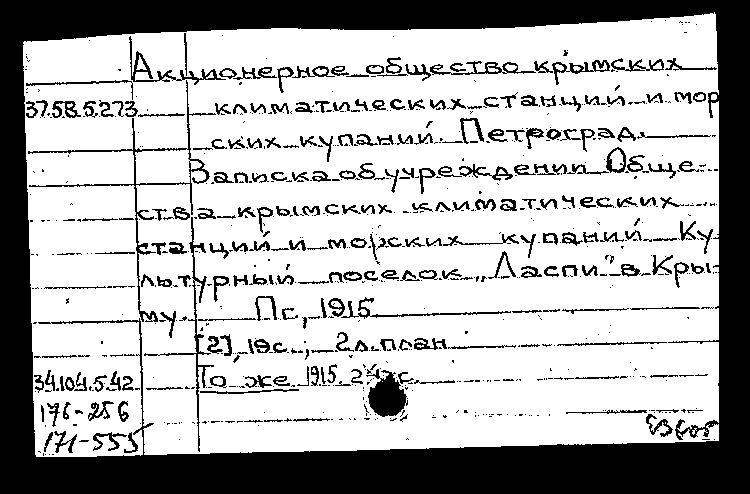 Акционерное общество крымских
37.58.5.273 климатических станций и мор
ских купаний. Петроград.
Записка об учреждении Обще-
ства крымских климатических
станций и морских купаний Ку
льтурный поселок „Ласпи" в Кры-
му. Пг, 1915
[2], 19с., 2л.план
34.104.5.42 То же 1915. с.
176-256
171-555